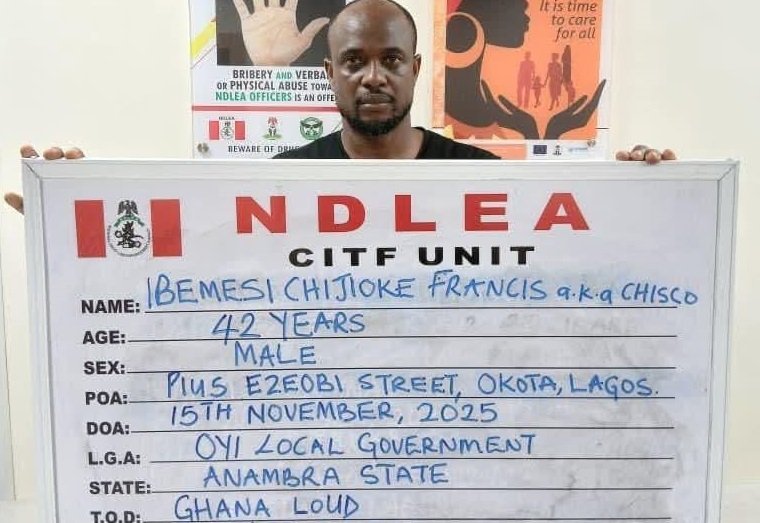 BRIBERY AND VERBAL
OR PHYSICAL ABUSE TOWA
NDLEA OFFICERS IS AN OFFE
NDLEA
BEWARE OF DRU
It is time
to care
for all
NDLEA
CITF UNIT
NAME: IBEMESI CHIJIOKE FRANCIS a.k.a CHISCO
AGE: 42 YEARS
SEX: MALE
POA: PIUS EZEOBI STREET, OKOTA, LAGOS.
DOA: 15TH NOVEMBER, 2025
L.G.A: OYI LOCAL GOVERNMENT
STATE: ANAMBRA STATE
T.O.D: GHANA LOUD